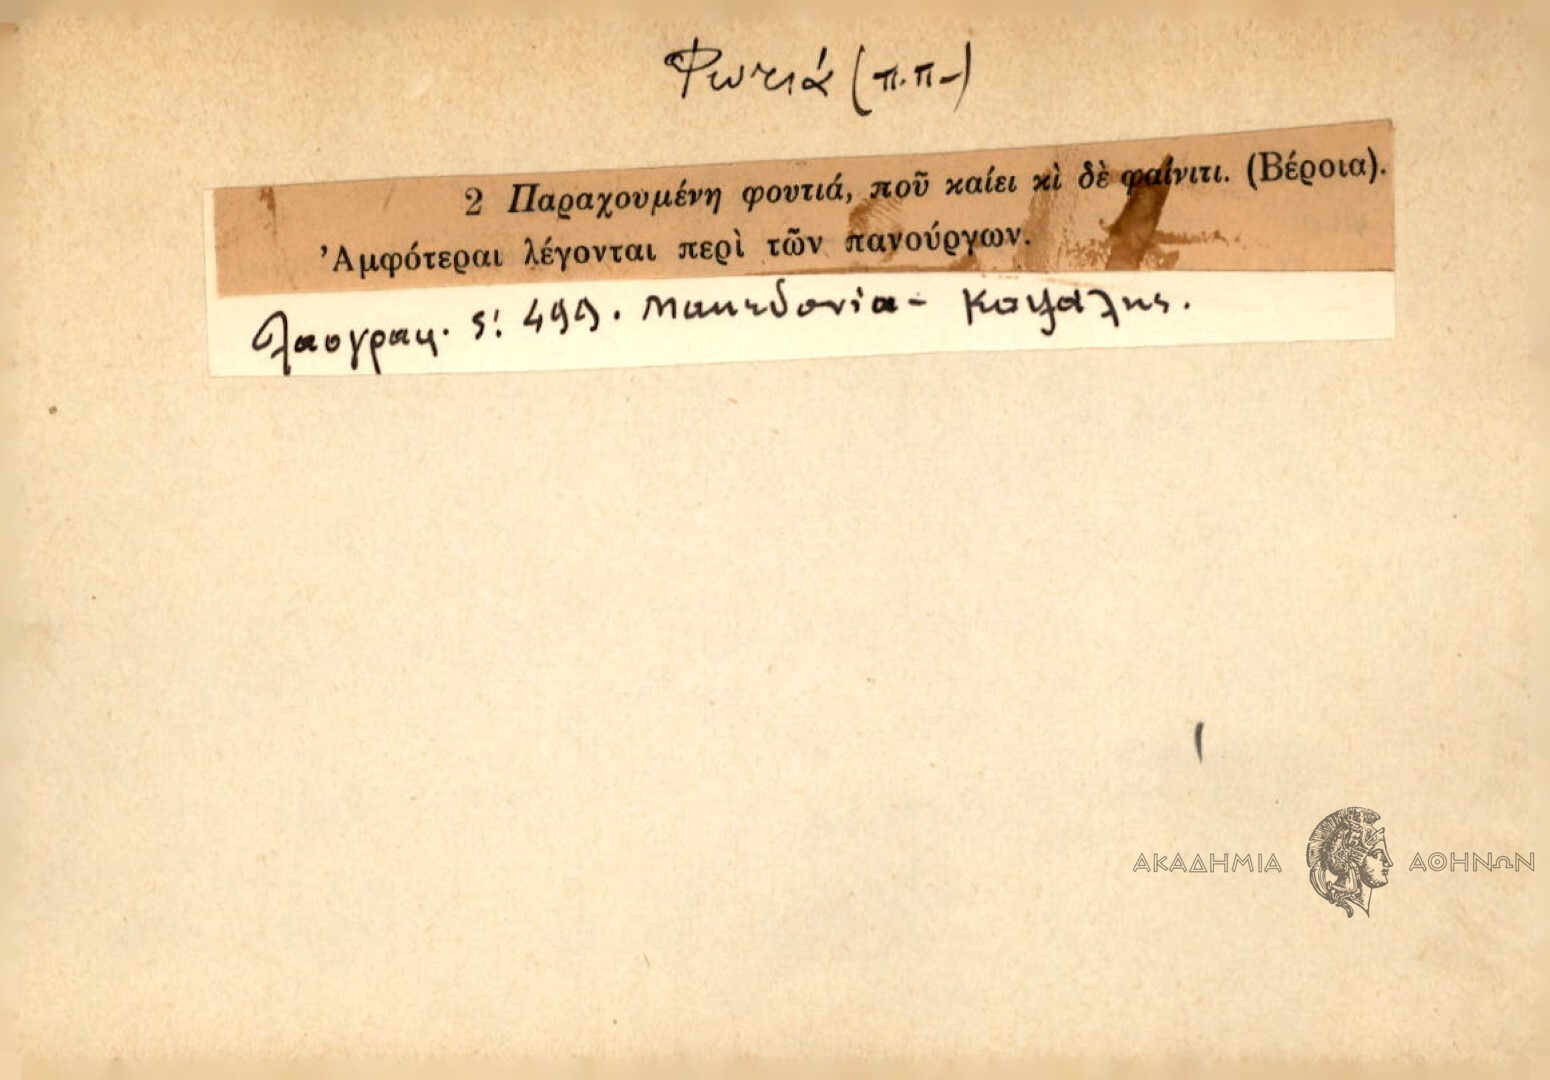 Φωτιά (π.π-)
2 Παραχουμένη φουτιά, ποῦ καίει κὶ δὲ φαίνιτι. (Βέροια).
Ἀμφότεραι λέγονται περὶ τῶν πανούργων.
Λαογραφ. ς! 499. Μακεδονία - Καψάλης.
ΑΚΑΔΗΜΙΑ ΑΘΗΝΩΝ